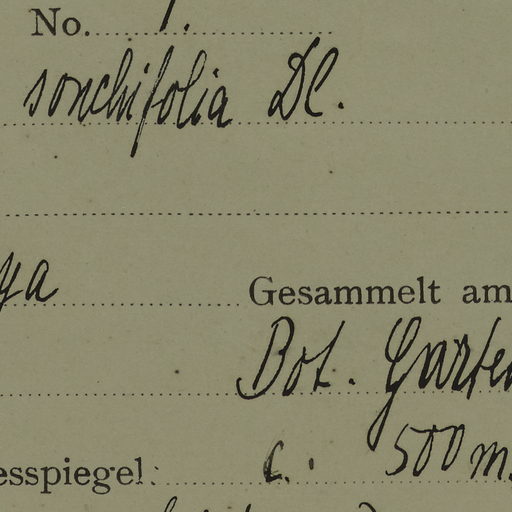 No. 1.
sonchifolia DC.
ya Gesammelt am
Bot. Garten
esspiegel: c. 500 m.